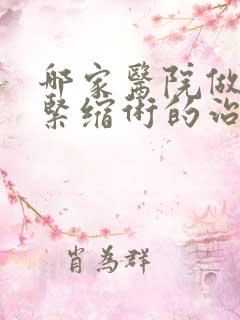 哪家醫院做
緊縮術的治
肖為群